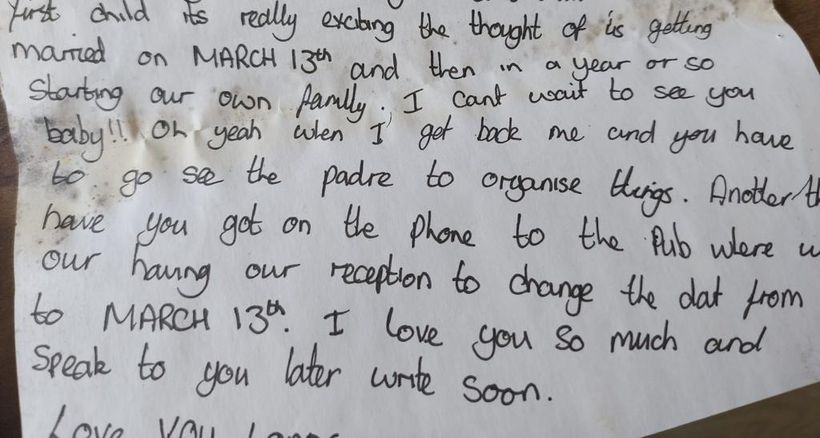 first child its really exciting the thought of us getting
married on MARCH 13th and then in a year or so
Starting our own family. I cant wait to see you
baby!! Oh yeah when I get back me and you have
to go see the padre to organise things. Another
have you got on the phone to the Pub where
our having our reception to change the dat from
to MARCH 13th. I love you so much and
Speak to you later write soon.
Love you